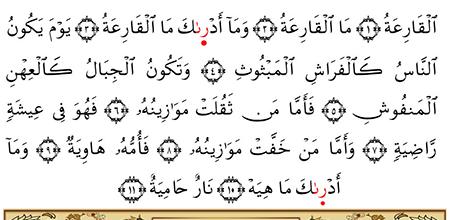 ٱلۡقَارِعَةُ ۝١ مَا ٱلۡقَارِعَةُ ۝٢ وَمَآ أَدۡرَىٰكَ مَا ٱلۡقَارِعَةُ ۝٣ يَوۡمَ يَكُونُ
ٱلنَّاسُ كَٱلۡفَرَاشِ ٱلۡمَبۡثُوثِ ۝٤ وَتَكُونُ ٱلۡجِبَالُ كَٱلۡعِهۡنِ
ٱلۡمَنفُوشِ ۝٥ فَأَمَّا مَن ثَقُلَتۡ مَوَٰزِينُهُۥ ۝٦ فَهُوَ فِي عِيشَةٖ
رَّاضِيَةٖ ۝٧ وَأَمَّا مَنۡ خَفَّتۡ مَوَٰزِينُهُۥ ۝٨ فَأُمُّهُۥ هَاوِيَةٞ ۝٩ وَمَآ
أَدۡرَىٰكَ مَا هِيَهۡ ۝١٠ نَارٌ حَامِيَةُۢ ۝١١